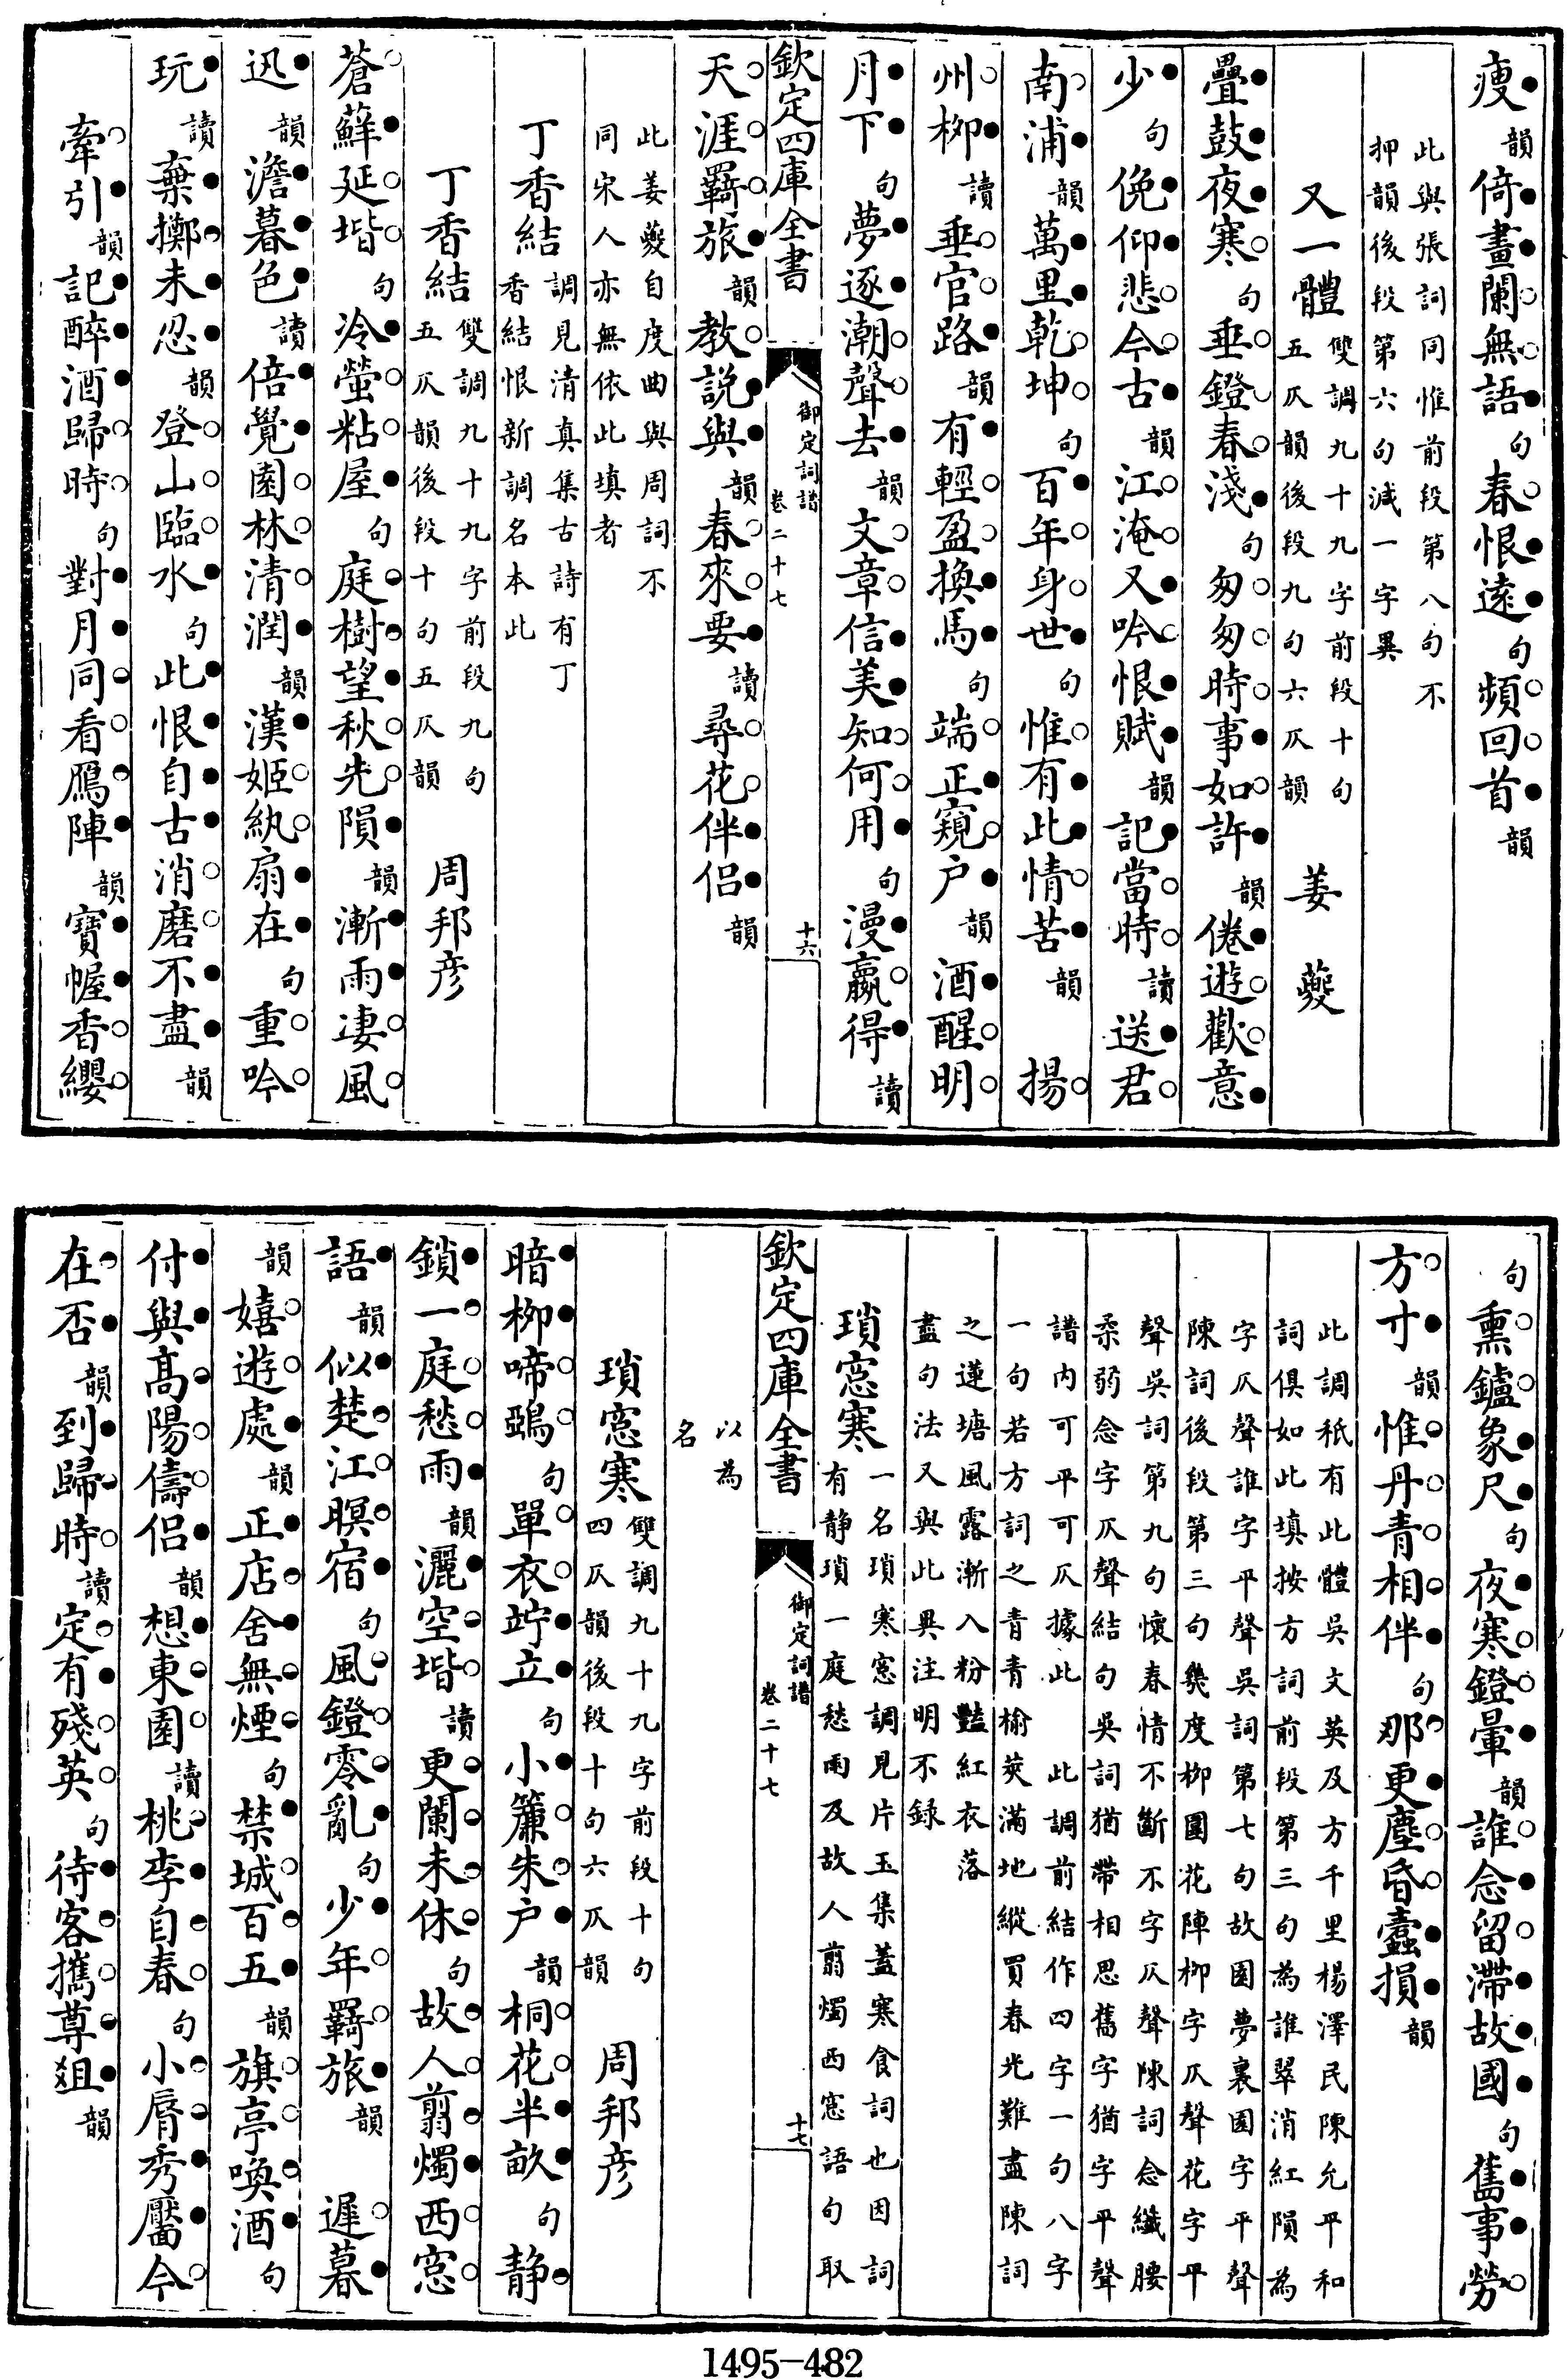 瘦韻倚畫闌無語句春恨遠句頻回首韻
此與張詞同惟前段第八句不
押韻後段第六句減一字異
又一體雙調九十九字前段十句
五仄韻後段九句六仄韻 姜夔
疊鼓夜寒句垂鐙春淺句匆匆時事如許韻倦遊歡意
少句俛仰悲今古韻江淹又吟恨賦韻記當時讀送君
南浦韻萬里乾坤句百年身世句惟有此情苦韻 揚
州柳讀垂官路韻有輕盈換馬句端正窺户韻酒醒明
月下句夢逐潮聲去韻文章信美知何用句漫贏得讀
欽定四庫全書 御定詞譜 卷二十七 十六
天涯羇旅韻教説與韻春來要讀尋花伴侣韻
此姜夔自度曲與周詞不
同宋人亦無依此填者
丁香結調見清真集古詩有丁
香結恨新調名本此
丁香結雙調九十九字前段九句
五仄韻後段十句五仄韻 周邦彦
蒼蘚延堦句冷螢粘屋句庭樹望秋先隕韻漸雨凄風
迅韻澹暮色讀倍覺園林清潤韻漢姬紈扇在句重吟
玩讀棄擲未忍韻登山臨水句此恨自古消磨不盡韻
牽引韻記醉酒歸時句對月同看鴈陣韻寶幄香纓
句熏鑪象尺句夜寒鐙暈韻誰念留滯故國句舊事勞
方寸韻惟丹青相伴句那更塵昏蠧損韻
此調秖有此體吳文英及方千里楊澤民陳允平和
詞俱如此填按方詞前段第三句為誰翠消紅隕為
字仄聲誰字平聲吳詞第七句故園夢裏園字平聲
陳詞後段第三句幾度柳圍花陣柳字仄聲花字平
聲吳詞第九句懷春情不斷不字仄聲陳詞念纖腰
柔弱念字仄聲結句吳詞猶帶相思舊字猶字平聲
譜内可平可仄據此 此調前結作四字一句八字
一句若方詞之青青榆莢滿地縱買春光難盡陳詞
之蓮塘風露漸入粉豔紅衣落
盡句法又與此異注明不録
瑣窓寒一名瑣寒窓調見片玉集蓋寒食詞也因詞
有静瑣一庭愁雨及故人翦燭西窓語句取
欽定四庫全書 御定詞譜 卷二十七 十七
以為
名
瑣窓寒雙調九十九字前段十句
四仄韻後段十句六仄韻 周邦彦
暗柳啼鴉句單衣竚立句小簾朱户韻桐花半畝句静
鎖一庭愁雨韻灑空堦讀更闌未休句故人翦燭西窓
語韻似楚江暝宿句風鐙零亂句少年羇旅韻 遲暮
韻嬉遊處韻正店舍無煙句禁城百五韻旗亭喚酒句
付與高陽儔侣韻想東園讀桃李自春句小脣秀靨今
在否韻到歸時讀定有殘英句待客攜尊爼韻
1495-482